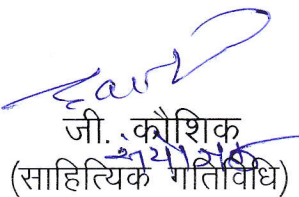 जी. कौशिक
संयोजक
(साहित्यिक गतिविधि)